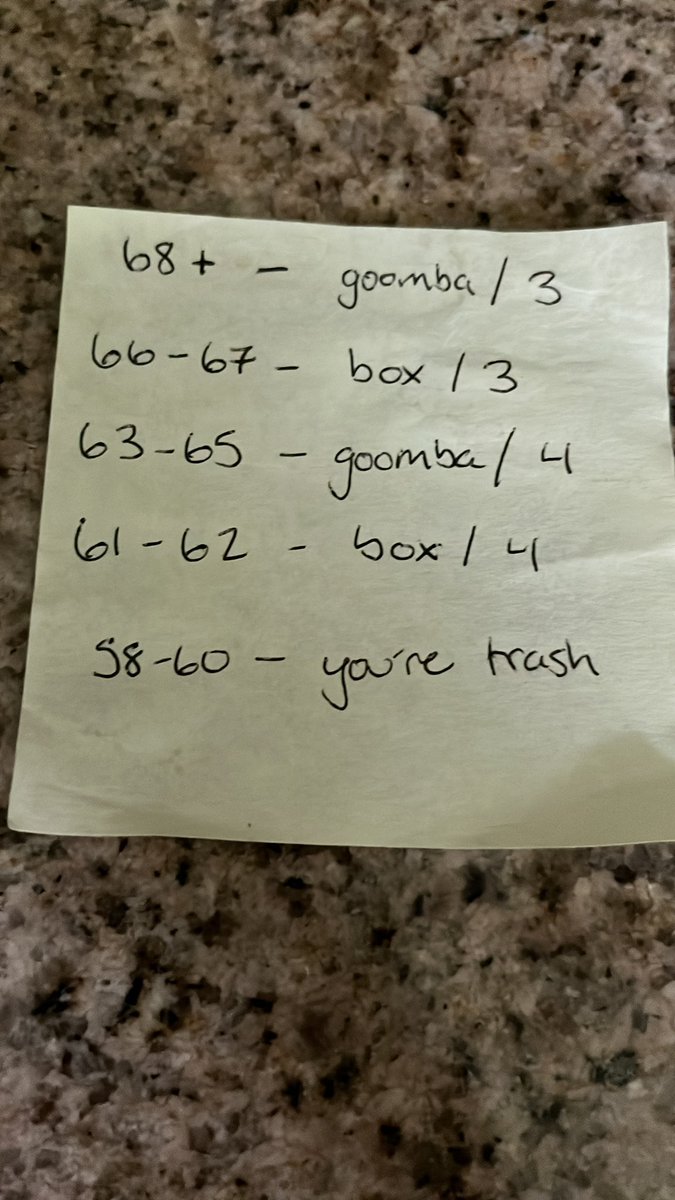 68+ - goomba / 3
66-67 - box / 3
63-65 - goomba / 4
61-62 - box / 4
58-60 - you're trash